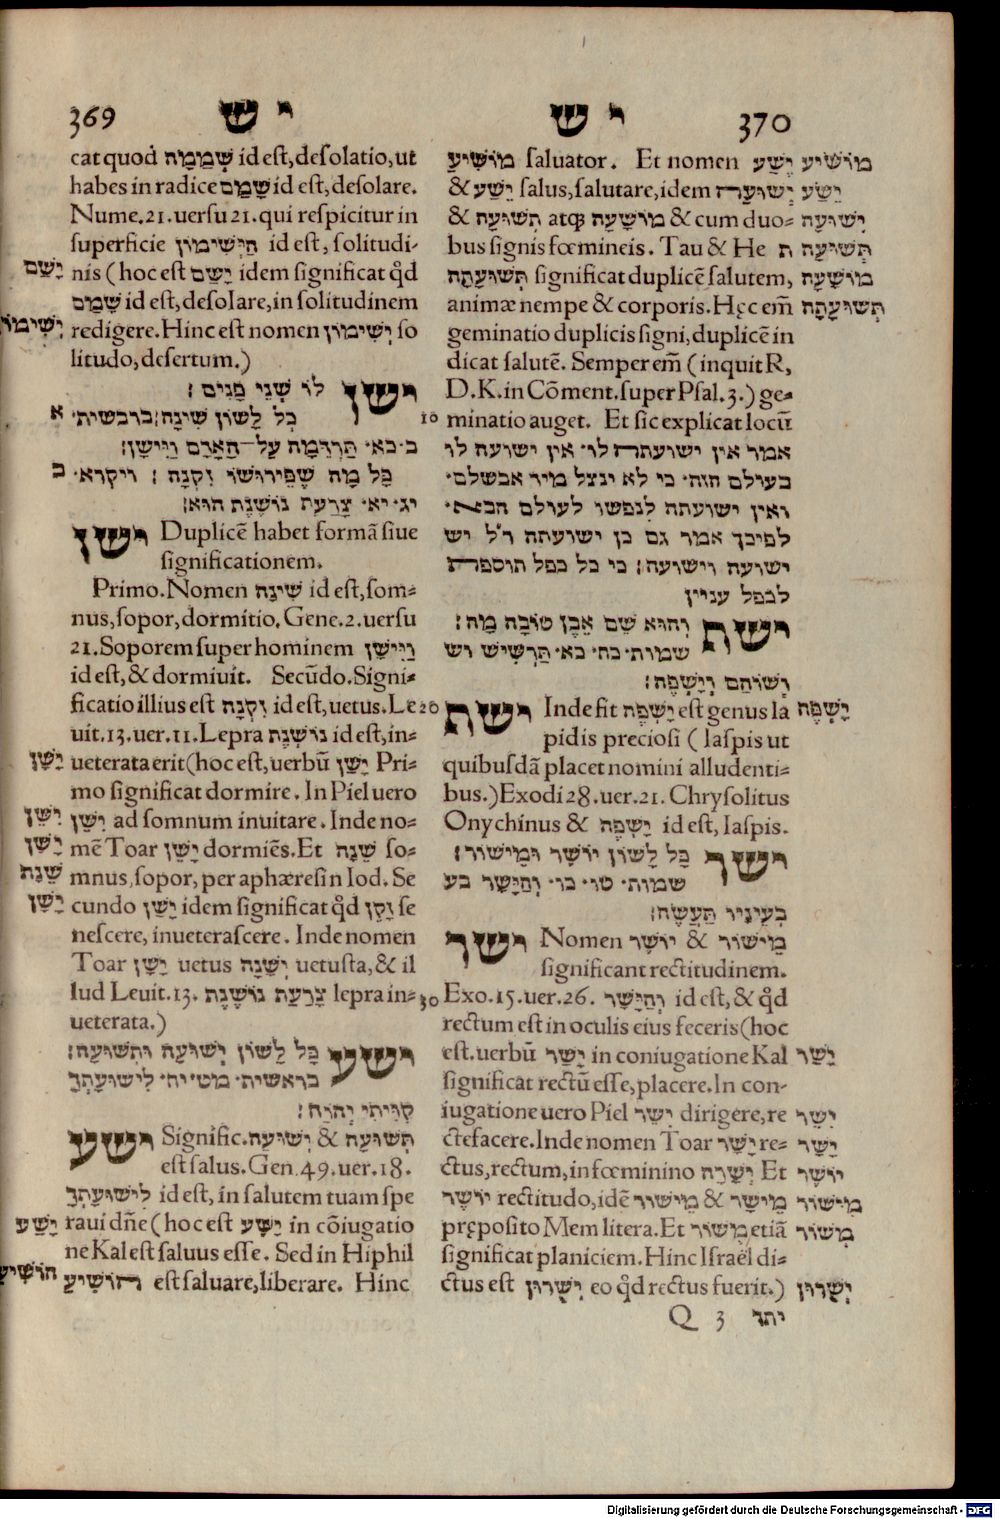 369 יש
cat quod שְׁמָמָה id est, desolatio, ut
habes in radice שָׁמַם id est, desolare.
Nume. 21. uersu 21. qui respicitur in
superficie הַיְשִׁימוֹן id est, solitudi-
יָשַׁם
nis (hoc est יָשַׁם idem significat q̃d
שָׁמַם id est, desolare, in solitudinem
יְשִׁימוֹן
redigere. Hinc est nomen יְשִׁימוֹן so
litudo, desertum.)
ישן לו שְׁנֵי פָנִים׃
א
כָל לְשׁוֹן שִׁינָה׃ בראשית׳
ב׳כא׳ תַּרְדֵּמָה עַל־הָאָדָם וַיִּישָׁן׃
ב
כָּל מָה שֶׁפֵּירוּשׁוֹ זִקְנָה׃ ויקרא׳
יג׳ יא׳ צָרַעַת נוֹשֶׁנֶת הוּא׃
ישן Duplicẽ habet formã siue
significationem.
Primo. Nomen שֵׁינָה id est, som-
nus, sopor, dormitio. Gene. 2. uersu
21. Soporem super hominem וַיִּישָׁן
id est, & dormiuit. Secũdo. Signi-
ficatio illius est זִקְנָה id est, uetus. Le
uit. 13. uer. 11. Lepra נוֹשֶׁנֶת id est, in-
יָשֵׁן
ueterata erit (hoc est, uerbũ יָשַׁן Pri-
mo significat dormire. In Piel uero
יִשֵּׁן
יִשֵּׁן ad somnum inuitare. Inde no-
יָשֵׁן
mẽ Toar יָשֵׁן dormiẽs. Et שֵׁנָה so-
שֵׁנָה
mnus, sopor, per aphæresin Iod. Se
יָשַׁן
cundo יָשַׁן idem significat q̃d זָקֵן se
nescere, inueterascere. Inde nomen
Toar יָשָׁן uetus יְשָׁנָה uetusta, & il
lud Leuit. 13. צָרַעַת נוֹשֶׁנֶת lepra in-
ueterata.)
ישע כָּל לְשׁוֹן יְשׁוּעָה וּתְשׁוּעָה׃
בראשית׳ מט׳יח׳ לִישׁוּעָתְךָ
קִוִּיתִי יְהוָה׃
ישע Signific. יְשׁוּעָה & תְּשׁוּעָה
est salus. Gen. 49. uer. 18.
לִישׁוּעָתְךָ id est, in salutem tuam spe
יָשַׁע
raui dñe (hoc est יָשַׁע in cõiugatio
ne Kal est saluus esse. Sed in Hiphil
הוֹשִׁיעַ
הוֹשִׁיעַ est saluare, liberare. Hinc
יש 370
מוֹשִׁיעַ saluator. Et nomen יֵשַׁע מוֹשִׁיעַ
& יֵשַׁע salus, salutare, idem יְשׁוּעָה יֵשַׁע
& תְּשׁוּעָה atq; מוֹשָׁעָה & cum duo- יְשׁוּעָה
bus signis fœmineis. Tau & He ת תְּשׁוּעָה
תְּשׁוּעָתָה significat duplicẽ salutem, מוֹשָׁעָה
animæ nempe & corporis. Hęc em̃ תְּשׁוּעָתָה
geminatio duplicis signi, duplicẽ in
dicat salutẽ. Semper em̃ (inquit R,
D. K. in Cõment. super Psal. 3.) ge-
10 minatio auget. Et sic explicat locũ
אמר אין ישועתה לו׳ אין ישועה לו
בעולם הזה׳ כי לא ינצל מיד אבשלם׳
ואין ישועתה לנפשו לעולם הבא׳
לפיכך אמר גם כן ישועתה ר״ל יש
ישועה וישועה׃ כי כל כפל תוספת
לכפל עניין
ישת וְהוּא שֵׁם אֶבֶן טוֹבָה מָה׃
שמות׳ כח׳ כא׳ תַּרְשִׁישׁ וש
וְשׁוֹהַם וְיָשְׁפֶה׃
20 ישת Inde fit יָשְׁפֶה est genus la יָשְׁפֶה
pidis preciosi (Iaspis ut
quibusdã placet nomini alludenti-
bus.) Exodi 28. uer. 21. Chrysolitus
Onychinus & יָשְׁפֶה id est, Iaspis.
ישר כָּל לְשׁוֹן יוֹשֶׁר וּמֵישׁוֹר׃
שמות׳ טו׳ כו׳ וְהַיָּשָׁר בע
בְּעֵינָיו תַּעֲשֶׂה׃
ישר Nomen יוֹשֶׁר & מֵישׁוֹר
significant rectitudinem.
30 Exo. 15. uer. 26. וְהַיָּשָׁר id est, & q̃d
rectum est in oculis eius feceris (hoc
est. uerbũ יָשַׁר in coniugatione Kal יָשַׁר
significat rectũ esse, placere. In con-
iugatione uero Piel יִשֵּׁר dirigere, re יִשֵּׁר
ctefacere. Inde nomen Toar יָשָׁר re- יָשָׁר
ctus, rectum, in fœminino יְשָׁרָה Et יוֹשֶׁר
יוֹשֶׁר rectitudo, idẽ מֵישָׁר & מֵישׁוֹר מֵישׁוֹר
pręposito Mem litera. Et מִשׁוֹר etiã מִשׁוֹר
significat planiciem. Hinc Israel di-
ctus est יְשֻׁרוּן eo q̃d rectus fuerit.) יְשֻׁרוּן
Q 3 יתד
Digitalisierung gefördert durch die Deutsche Forschungsgemeinschaft - DFG